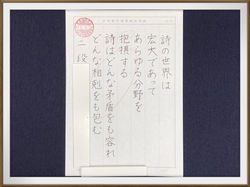 詩の世界は
宏大であって
あらゆる分野を
抱擁する
詩はどんな矛盾をも容れ
どんな相剋をも包む
二段